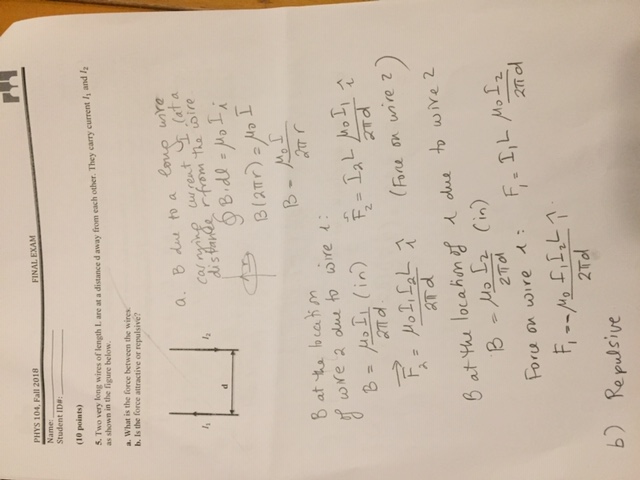 PHYS 104, Fall 2018 FINAL EXAM
Name:
Student ID#:
(10 points)
5. Two very long wires of length L are at a distance d away from each other. They carry current I₁ and I₂
as shown in the figure below.
a. What is the force between the wires.
b. Is the force attractive or repulsive?
I₁ I₂
d
a. B due to a long wire
carrying current I (at a
distance r from the wire
r
∮B·dl = μ₀ I i
B(2πr) = μ₀ I
B = μ₀I / 2πr
B at the location
of wire 2 due to wire 1:
B = μ₀I₁ / 2πd (in) F₂ = I₂L μ₀I₁ / 2πd î
F₂ = μ₀I₁I₂L / 2πd î (Force on wire 2)
B at the location of 1 due to wire 2
B = μ₀I₂ / 2πd (in)
Force on wire 1: F₁ = I₁L μ₀I₂ / 2πd
F₁ = -μ₀ I₁I₂L / 2πd î
b) Repulsive